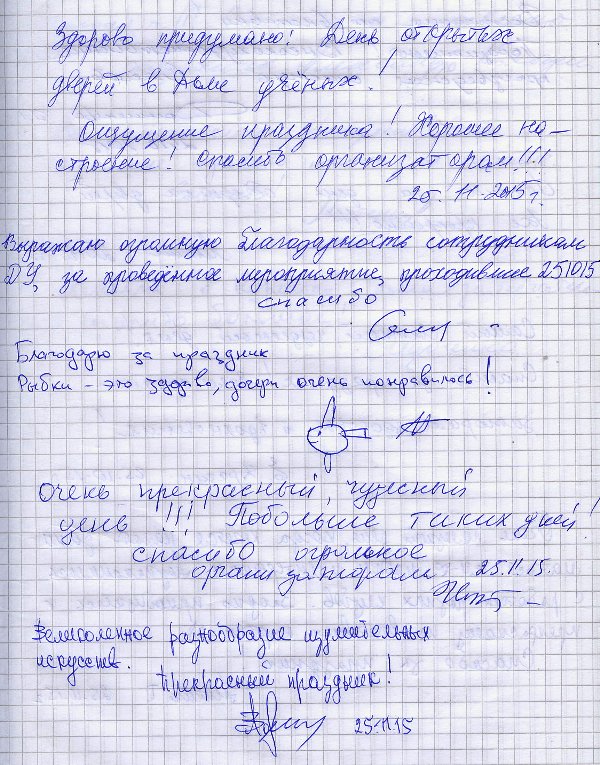 Здорово придумано! День открытых
дверей в Доме учёных!
Ощущение праздника! Хорошее на-
строение! Спасибо организаторам!!!!
25.11.2015г.
Выражаю огромную благодарность сотрудникам
ДУ, за проведенное мероприятие, проходившее 251015
спасибо
Благодарю за праздник
Рыбки – это здорово, дочери очень понравилось!
Очень прекрасный, чудесный
день !!! Побольше таких дней!
спасибо огромное
организаторам 25.11.15.
Великолепное разнообразие изумительных
искусств.
Прекрасный праздник!
25.11.15